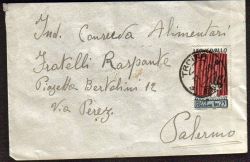 Ind. Conserva Alimentari
Fratelli Raspante
Piazzetta Bertolini 12
Via Perez
Palermo